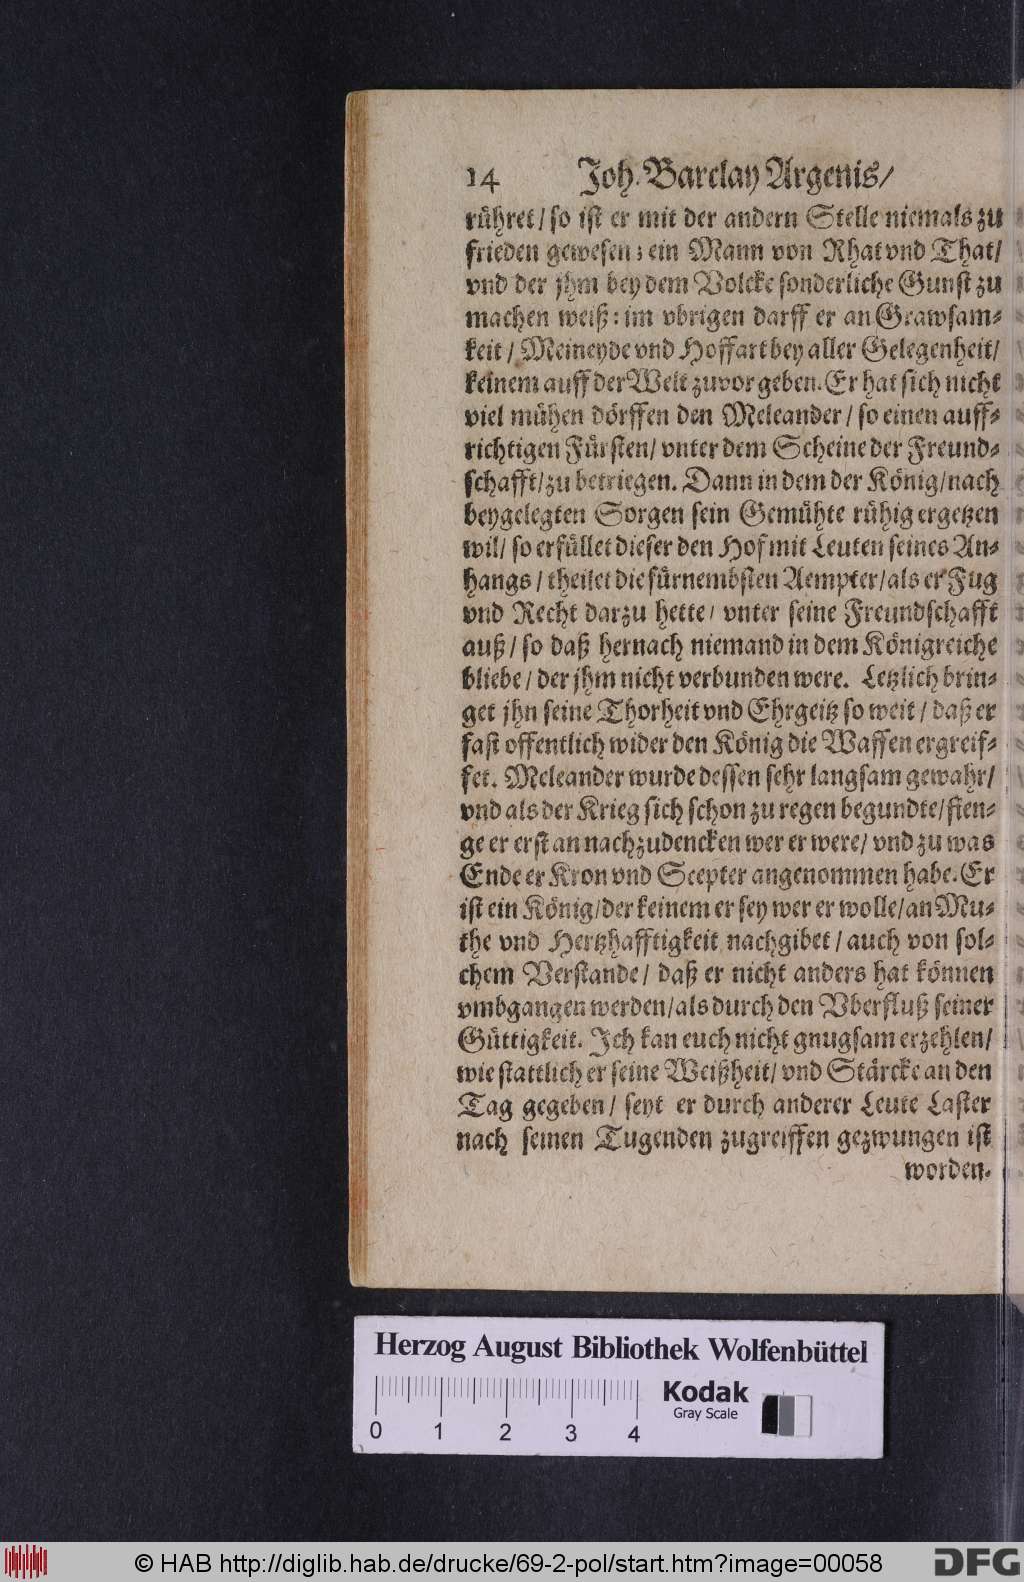 14 Joh. Barclay Argenis/
rühret/ so ist er mit der andern Stelle niemals zu
frieden gewesen; ein Mann von Rhat vnd That/
vnd der jhm bey dem Volcke sonderliche Gunst zu
machen weiß: im vbrigen darff er an Grawsam-
keit/ Meineyde vnd Hoffart bey aller Gelegenheit/
keinem auff der Welt zuvor geben. Er hat sich nicht
viel mühen dörffen den Meleander/ so einen auff-
richtigen Fürsten/ vnter dem Scheine der Freund-
schafft/ zu betriegen. Dann in dem der König/ nach
beygelegten Sorgen sein Gemühte rühig ergetzen
wil/ so erfüllet dieser den Hof mit Leuten seines An-
hangs/ theilet die fürnembsten Aempter/ als er Fug
vnd Recht darzu hette/ vnter seine Freundschafft
auß/ so daß hernach niemand in dem Königreiche
bliebe/ der jhm nicht verbunden were. Letzlich brin-
get jhn seine Thorheit vnd Ehrgeitz so weit/ daß er
fast offentlich wider den König die Waffen ergreif-
fet. Meleander wurde dessen sehr langsam gewahr/
vnd als der Krieg sich schon zu regen begundte/ fien-
ge er erst an nachzudencken wer er were/ vnd zu was
Ende er Kron vnd Scepter angenommen habe. Er
ist ein König/ der keinem er sey wer er wolle/ an Mu-
the vnd Hertzhafftigkeit nachgibet/ auch von sol-
chem Verstande/ daß er nicht anders hat können
vmbgangen werden/ als durch den Vberfluß seiner
Güttigkeit. Ich kan euch nicht gnugsam erzehlen/
wie stattlich er seine Weißheit/ vnd Stärcke an den
Tag gegeben/ seyt er durch anderer Leute Laster
nach seinen Tugenden zugreiffen gezwungen ist
worden.
Herzog August Bibliothek Wolfenbüttel
Kodak
Gray Scale
0 1 2 3 4
© HAB http://diglib.hab.de/drucke/69-2-pol/start.htm?image=00058
DFG